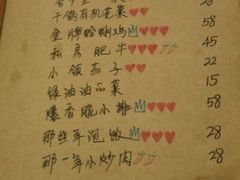 干锅有机花菜 28
金牌蛤蜊鸡 58
私房肥牛 45
小领茄子 22
绿油油的菜 15
爆香脆小排 58
那些年泡饭 28
那一年小炒肉 28